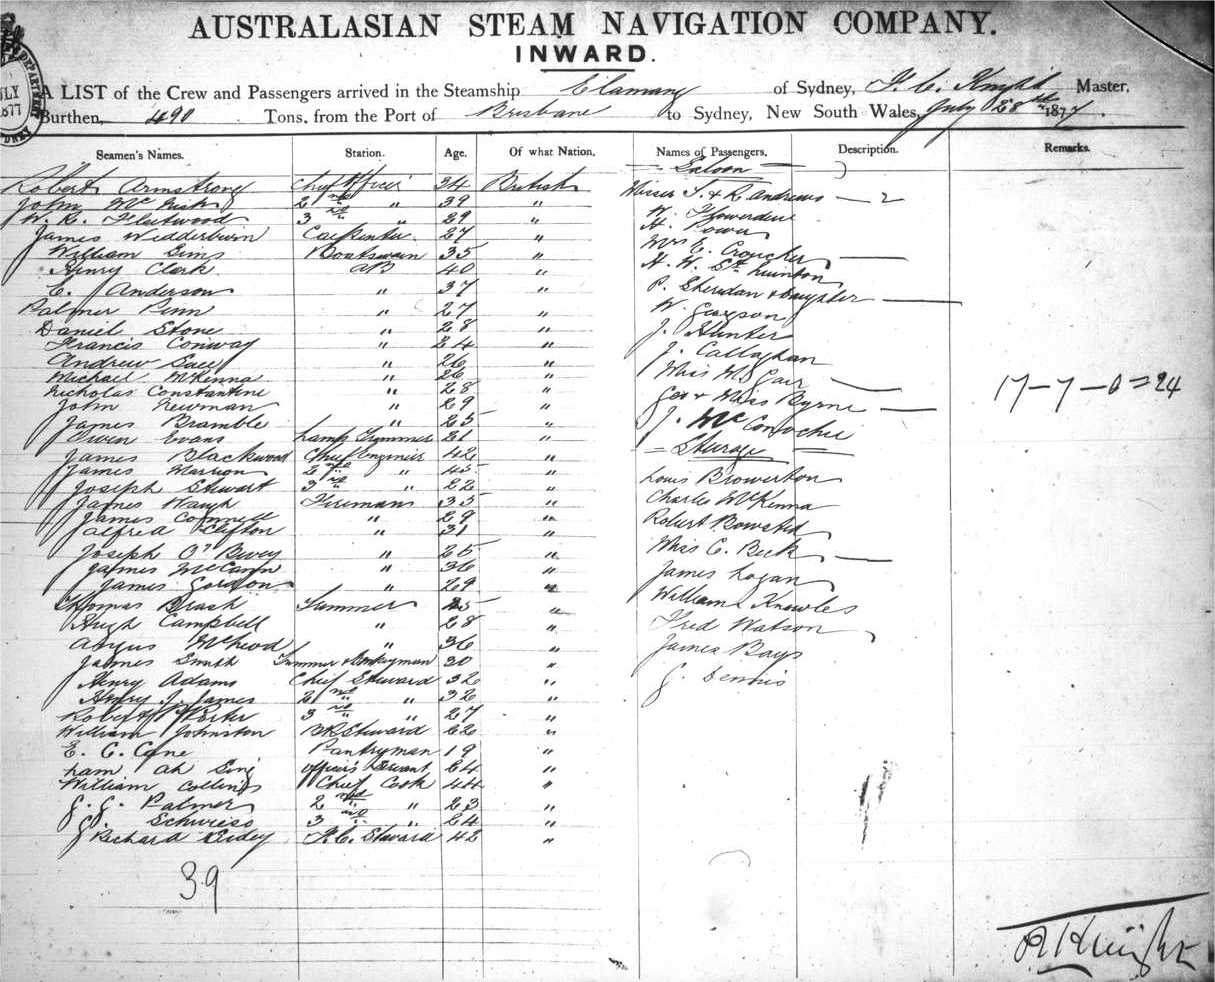 AUSTRALASIAN STEAM NAVIGATION COMPANY.
INWARD.
A LIST of the Crew and Passengers arrived in the Steamship of Sydney, Master,
Burthen, 490 Tons, from the Port of Brisbane to Sydney, New South Wales, July 28th 1877.
Seamen's Names. Station. Age. Of what Nation. Names of Passengers. Description. Remarks.
Saloon
Robert Armstrong Chief Officer 34 British Misses S. & R. Andrews — 2
John 2nd " 39 "
W. R. Fleetwood 3rd " 29 " H. Power
James Wedderburn Carpenter 27 " Mrs E. Croucher
William Sims Boatswain 35 " H. W. St Quinton
Henry Clark AB 40 "
C. Anderson " 37 " P. Sheridan & daughter
Palmer Penn " 27 " W. Grayson
Daniel Stone " 28 " J. Hunter
Francis Conway " 24 " J. Callaghan
Andrew " 26 "
Michael McKenna " 26 " Miss
Nicholas Constantine " 28 " Geo & Miss Byrne 17-7-0=24
John Newman " 29 "
James Bramble " 25 " J. McConochie
Owen Evans Lamp Trimmer 21 "
James Blackwood Chief Engineer 42 " Steerage
James 2nd " 45 "
Joseph Stewart 3rd " 22 " Louis Browerton
James Waugh Firemans 35 " Charles McKenna
James Connell " 29 " Robert Bowsted
Alfred Clifton " 31 "
Joseph " 25 " Miss C. Beck
James McCann " 36 " James Logan
James Gordon " 29 "
Thomas Brash " William Knowles
Hugh Campbell " 28 " Fred Watson
Angus McLeod " 36 " James Bays
James Smith & Donkeyman 30 " J. Dennis
Henry Adams Chief Steward 32 "
Henry J. James 2nd " 32 "
Robert Porter 3rd " 27 "
William Johnston Steward 22 "
E. C. Cane Pantryman 19 "
Ham Ah Sing Officers Servant 24 "
William Collings Chief Cook 44 "
J. J. Palmer 2nd " 23 "
3rd " 24 "
Richard Steward 42 "
39